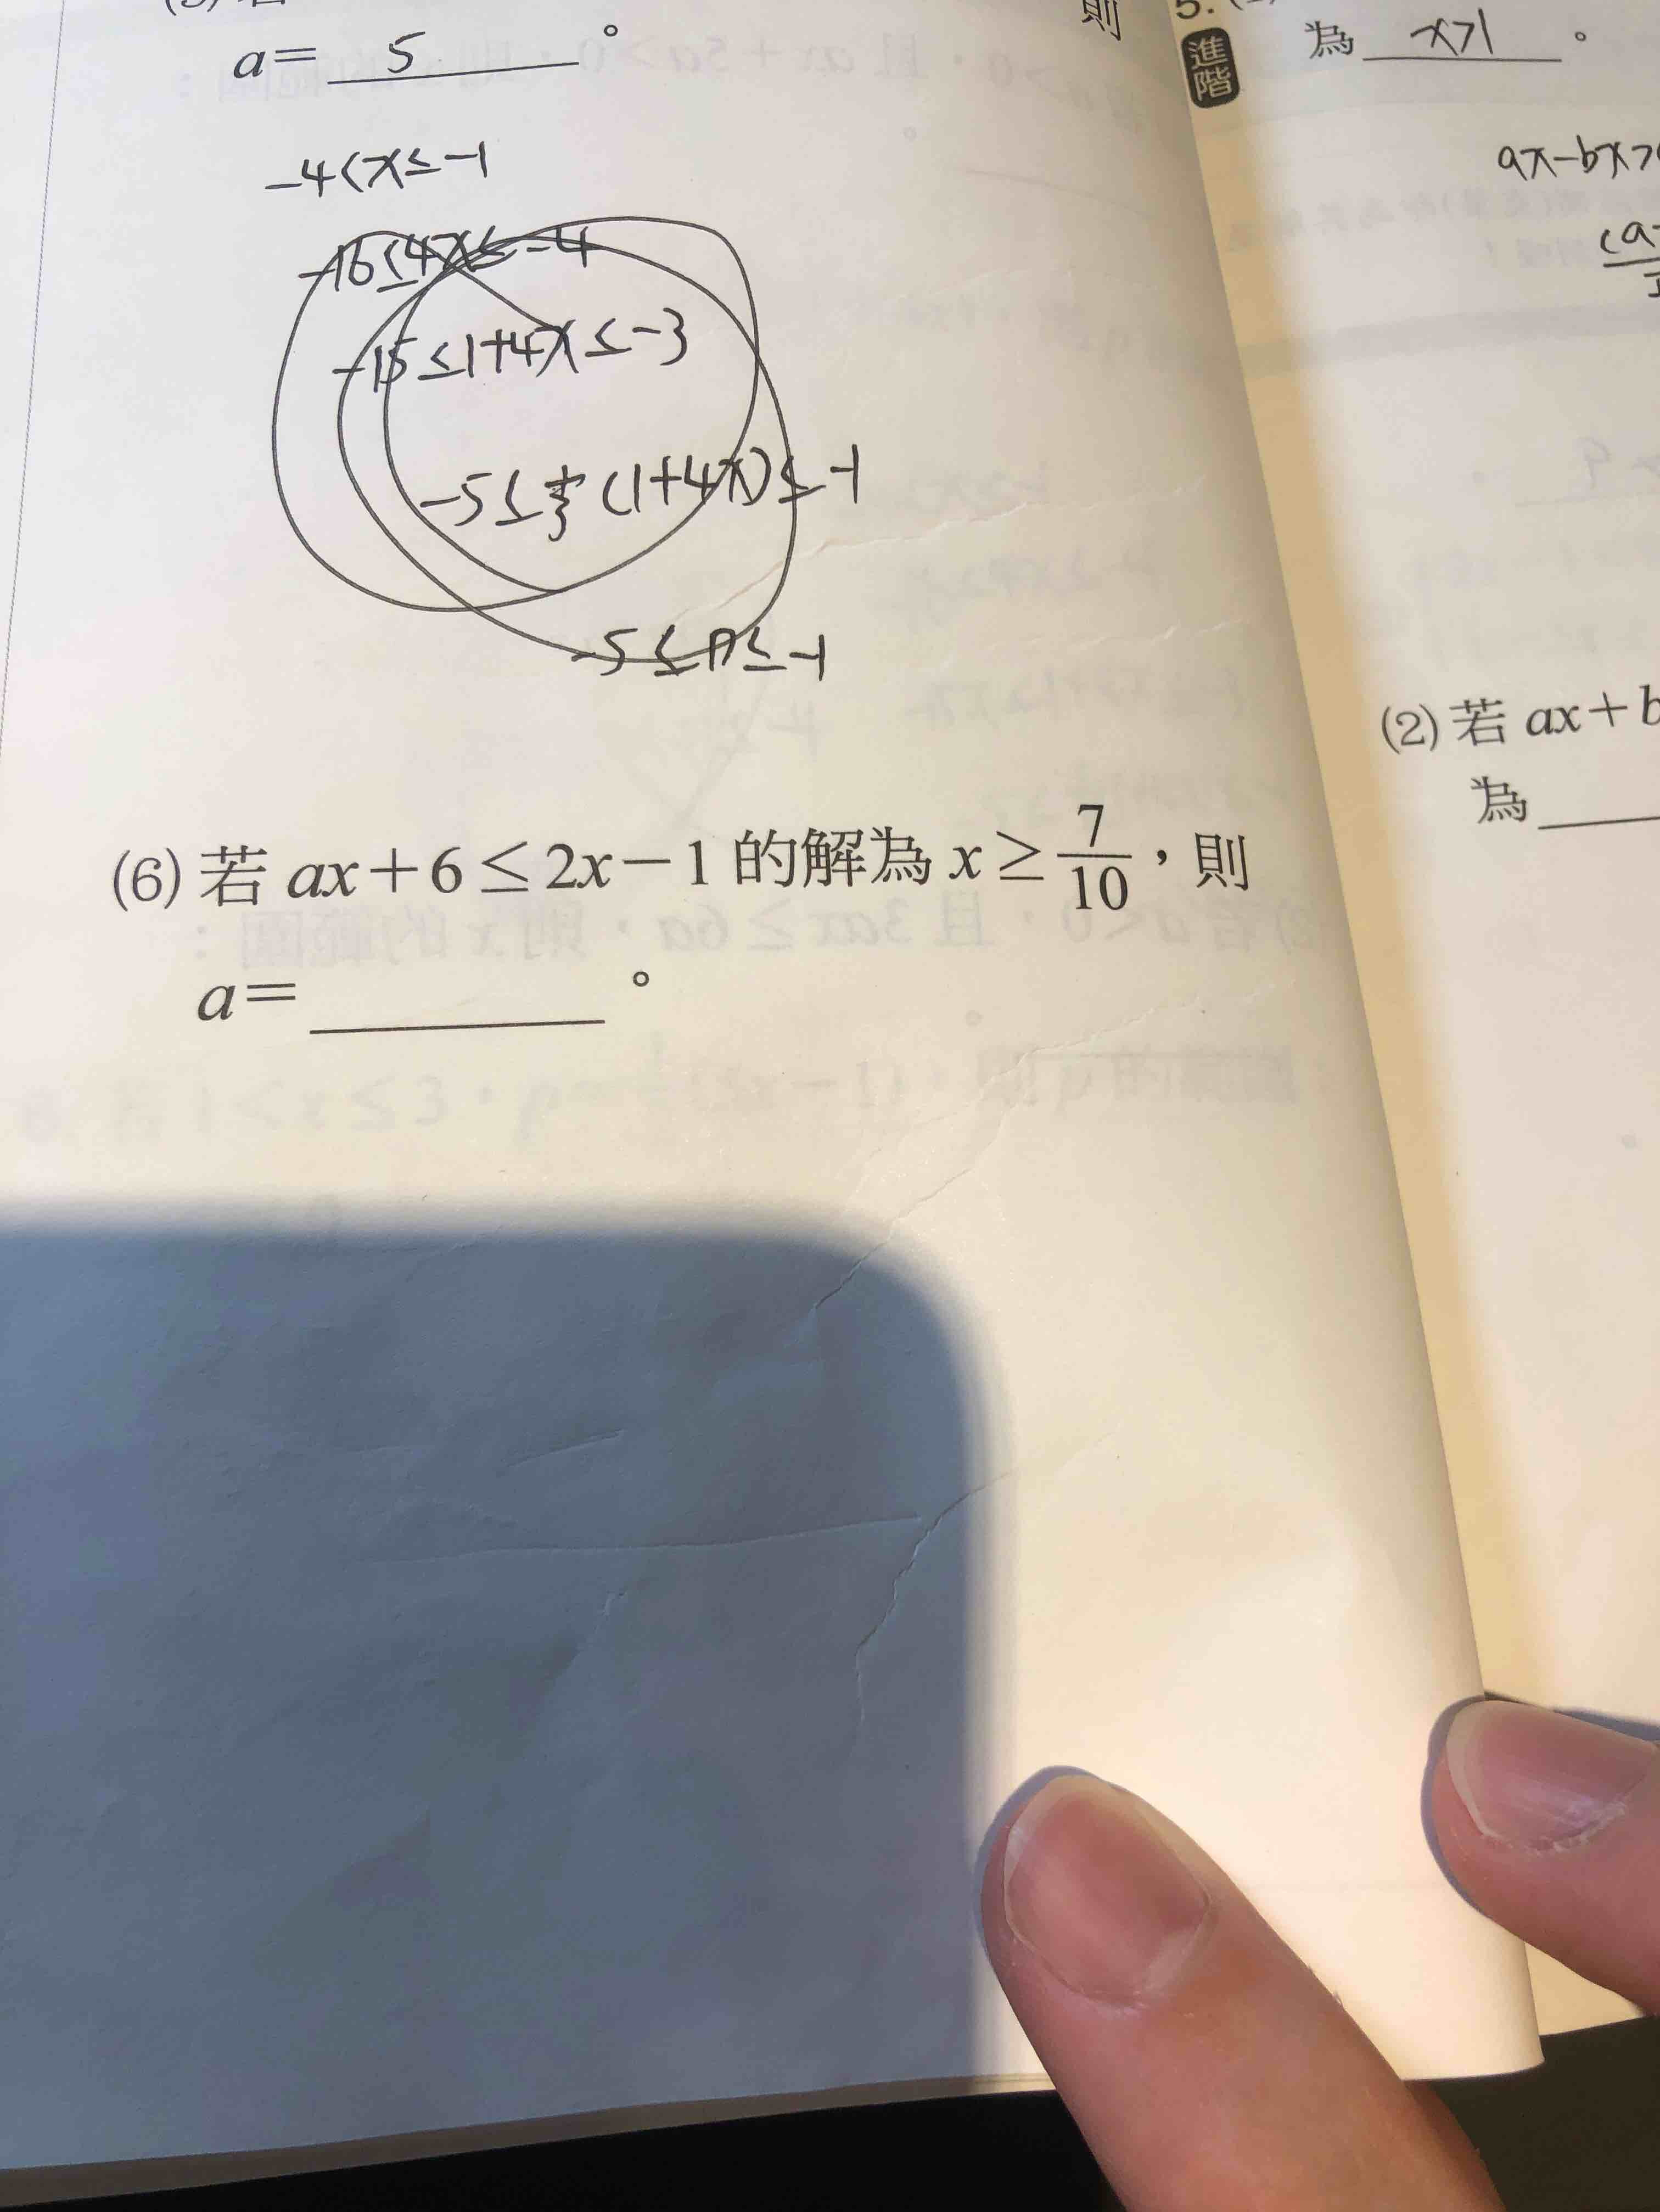 a= 5 。
-4<x≤-1
-16≤4x≤-4
-15≤1+4x≤-3
-5≤⅓(1+4x)≤-1
-5≤P≤-1
(6) 若 ax+6≤2x-1 的解為 x≥7/10，則
a= ______ 。
則
5.
進階
為 x>1 。
ax-bx>
(a-
(2) 若 ax+b
為